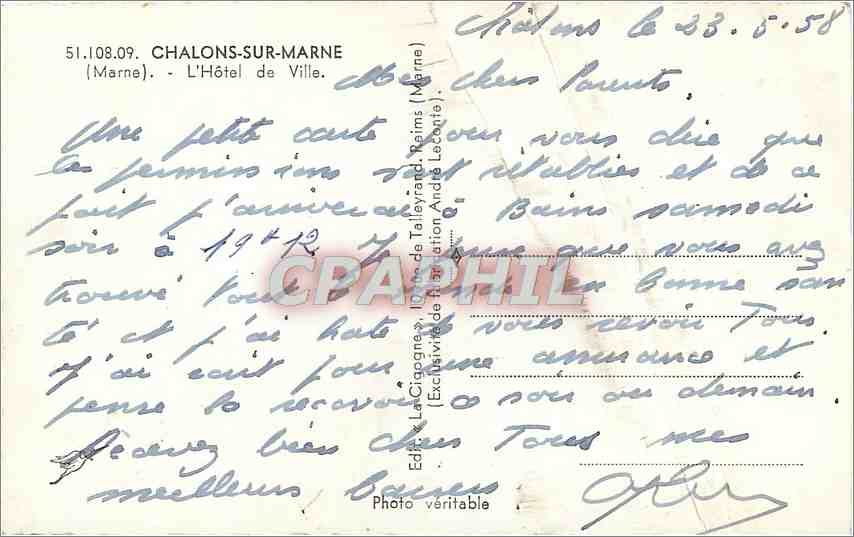 51.108.09. CHALONS-SUR-MARNE
(Marne). - L'Hôtel de Ville.
Châlons le 23.5.58
Mes chers Parents.
Une petite carte pour vous dire que
les permissions sont rétablies et de ce
fait j'arriverai à Bains samedi
soir à 19h12 J'espère que vous avez
trouvé tout le monde en bonne san
té et j'ai hate de vous revoir Tous
J'ai écrit pour une assurance et
pense la recevoir ce soir ou demain
Recevez bien chers Tous mes
meilleurs baisers
Edit. « La Cigogne ». 10, rue de Talleyrand. Reims (Marne)
(Exclusivité de fabrication André Leconte).
Photo véritable
CPARPHIL